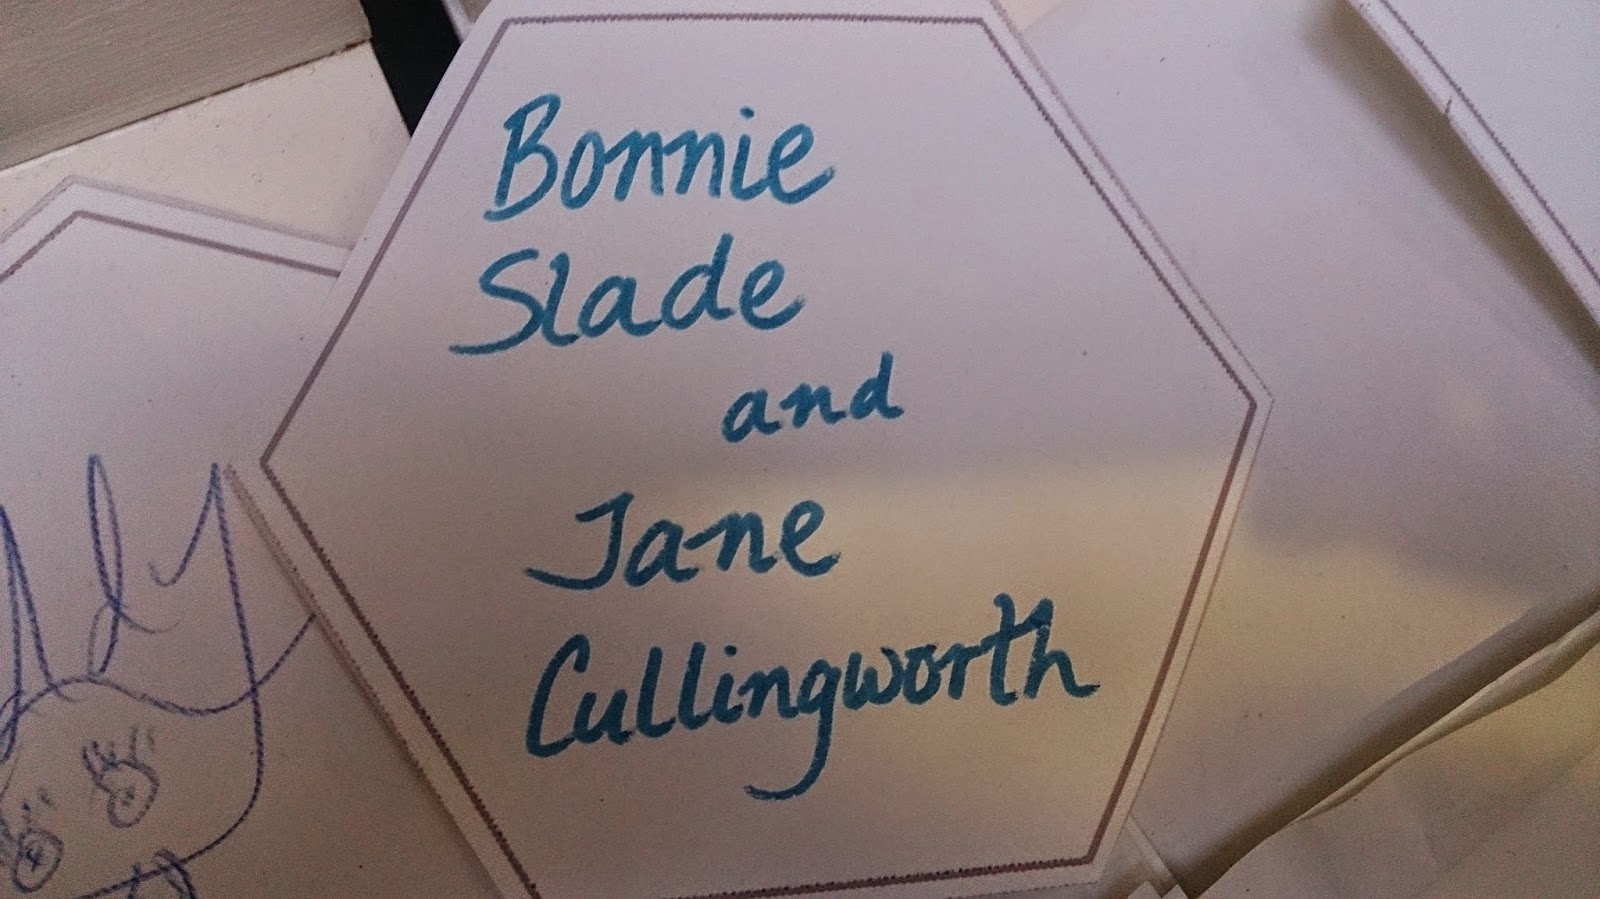 Bonnie
Slade
and
Jane
Cullingworth